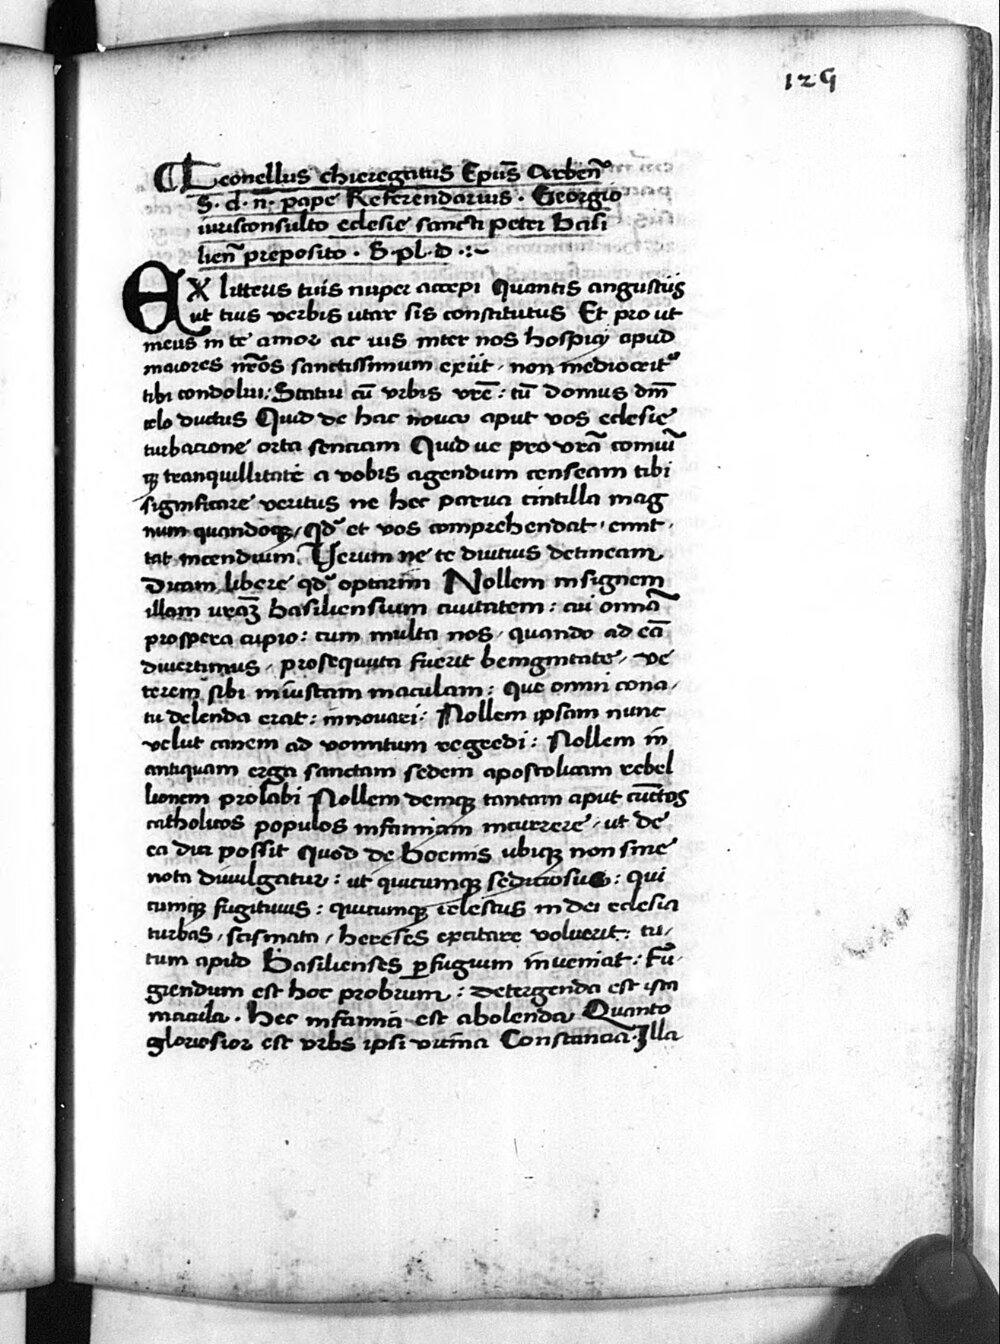 129
Leonellus chieregatus Ep̄us Arbeñ
S. d. n. pape Referendarius. Georgio
iurisconsulto eclesie sancti petri Basi
lieñ preposito. S. pl. d.
EX litteris tuis nuper accepi Quantis angustiis
ut tuis verbis utar sis constitutus Et pro ut
meus in te amor ac ius inter nos hospicij apud
maiores nr̄os sanctissimum exiit, non mediocrit
tibi condolui: Statui cū urbis vr̄e: tū domus dn̄i
zelo ductus Quid de hac noua aput vos eclesie
turbacione orta senciam Quid ue pro vr̄a comūi
qꝫ tranquillitate a vobis agendum censeam tibi
significare veritus ne hec parua cintilla mag
num quandoqꝫ, qd̄ et vos comprehendat, emit,
tat incendium. Verum ne te diutius detineam
Dicam libere qd̄ optarim Nollem insignem
illam vr̄aꝫ basiliensium ciuitatem: cui omn̄a
prospera cupio: cum multa nos, quando ad eā
diuertimus, prosequuta fuerit benignitate, ve
terem sibi iniustam maculam: que omni cona,
tu delenda erat: innouari: Nollem ipsam nunc
velut canem ad vomitum regredi: Nollem in
antiquam erga sanctam sedem apostolicam rebel
lionem prolabi Nollem deniqꝫ tantam aput cūctos
catholicos populos infamiam incurrere, ut de
ea dici possit quod de boemis ubiqꝫ non sine
nota diuulgatur: ut quicumqꝫ sediciosus: qui
cumqꝫ fugitiuus: quicumqꝫ scelestus in dei eclesia
turbas, scismata, hereses excitare voluerit: tu,
tum apud Basilienses ꝑfugium inueniat: Fū,
giendum est hoc probrum: detergenda est ista
macula. hec infamia est abolenda Quanto
gloriosior est urbs ipsi vicina Constancia. Illa